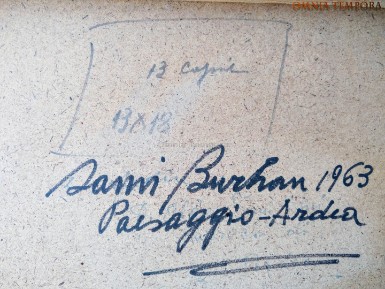 OMNIA TEMPORA
13
13x18
Sami Burhan 1963
Paesaggio-Ardea